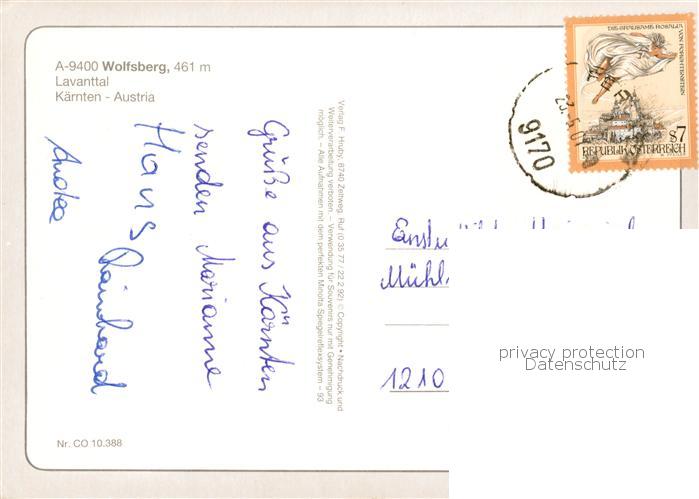 A-9400 Wolfsberg, 461 m
Lavanttal
Kärnten - Austria
Grüße aus Kärnten
senden Marianne
Hans Reinhard
Andrea
Verlag F. Hruby, 8740 Zeltweg, Ruf (0 35 77 / 22 2 92) © Copyright • Nachdruck und
Weiterverarbeitung verboten. – Verwendung für Souvenirs nur mit Genehmigung
möglich. – Alle Aufnahmen mit dem perfekten Minolta Spiegelreflexsystem – 93
Nr. CO 10.388
DIE GRAUSAME ROSALIA
VON FORCHTENSTEIN
S7
REPUBLIK ÖSTERREICH
9170
Mühl
1210
privacy protection
Datenschutz